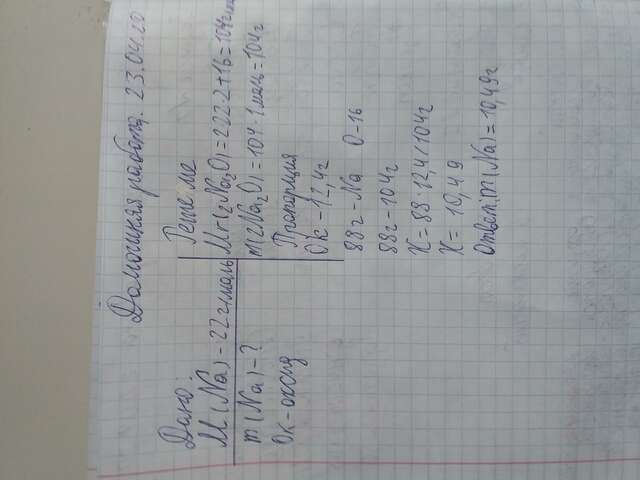 Домашняя работа. 23.04.20
Дано:
M(Na) - 22 г/моль
m(Na) - ?
Ок - оксид
Решение
Mr(2Na2O)=2·22·2+16=104 г/моль
m(2Na2O)=104·1 моль=104г
Пропорция
Ок - 12,4г
88г - Na O-16
88г - 104г
X=88·12,4/104г
X=10,49
Ответ: m(Na)=10,49г